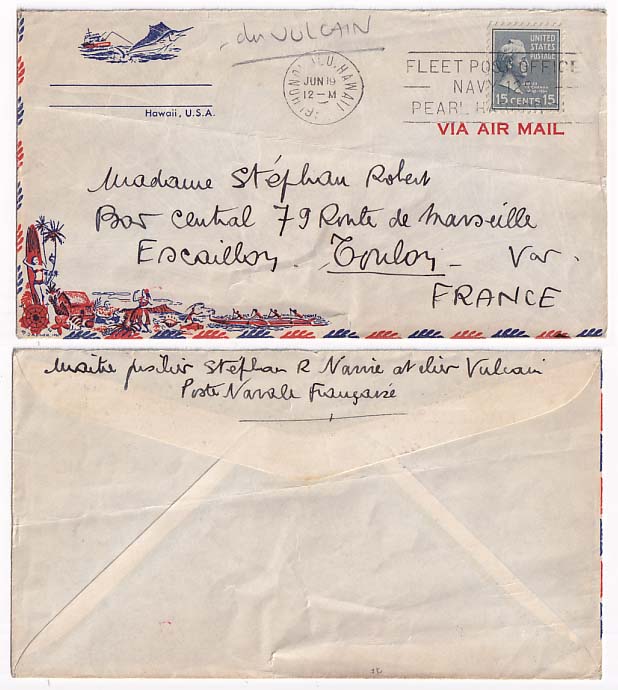 du VULCAIN
HONOLULU, HAWAII
JUN 19
12-M
FLEET POST OFFICE
NAVY
PEARL
UNITED
STATES
POSTAGE
15 CENTS 15
VIA AIR MAIL
Hawaii, U.S.A.
Madame Stéphan Robert
Bar Central 79 Route de Marseille
Escaillon. Toulon - Var.
FRANCE
Maitre fusilier Stéphan R Navire atelier Vulcain
Poste Navale Française